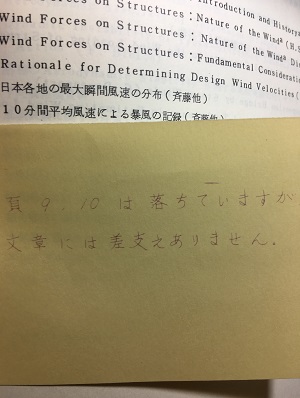 Introduction and History
Wind Forces on Structures : Nature of the Wind² (H.S
Wind Forces on Structures : Nature of the Wind³ Di
Wind Forces on Structures : Fundamental Considerati
Rationale for Determining Design Wind Velocities (
日本各地の最大瞬間風速の分布 (斉藤他)
10分間平均風速による暴風の記録 (斉藤他)
頁9.10は落ちていますが
文章には差支えありません.